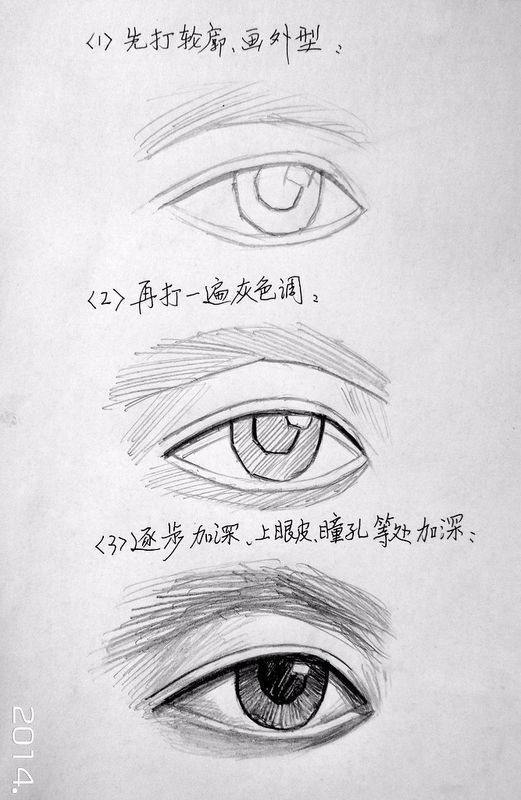 〈1〉先打轮廓、画外型：
〈2〉再打一遍灰色调：
〈3〉逐步加深、上眼皮、瞳孔等处加深：
2014.